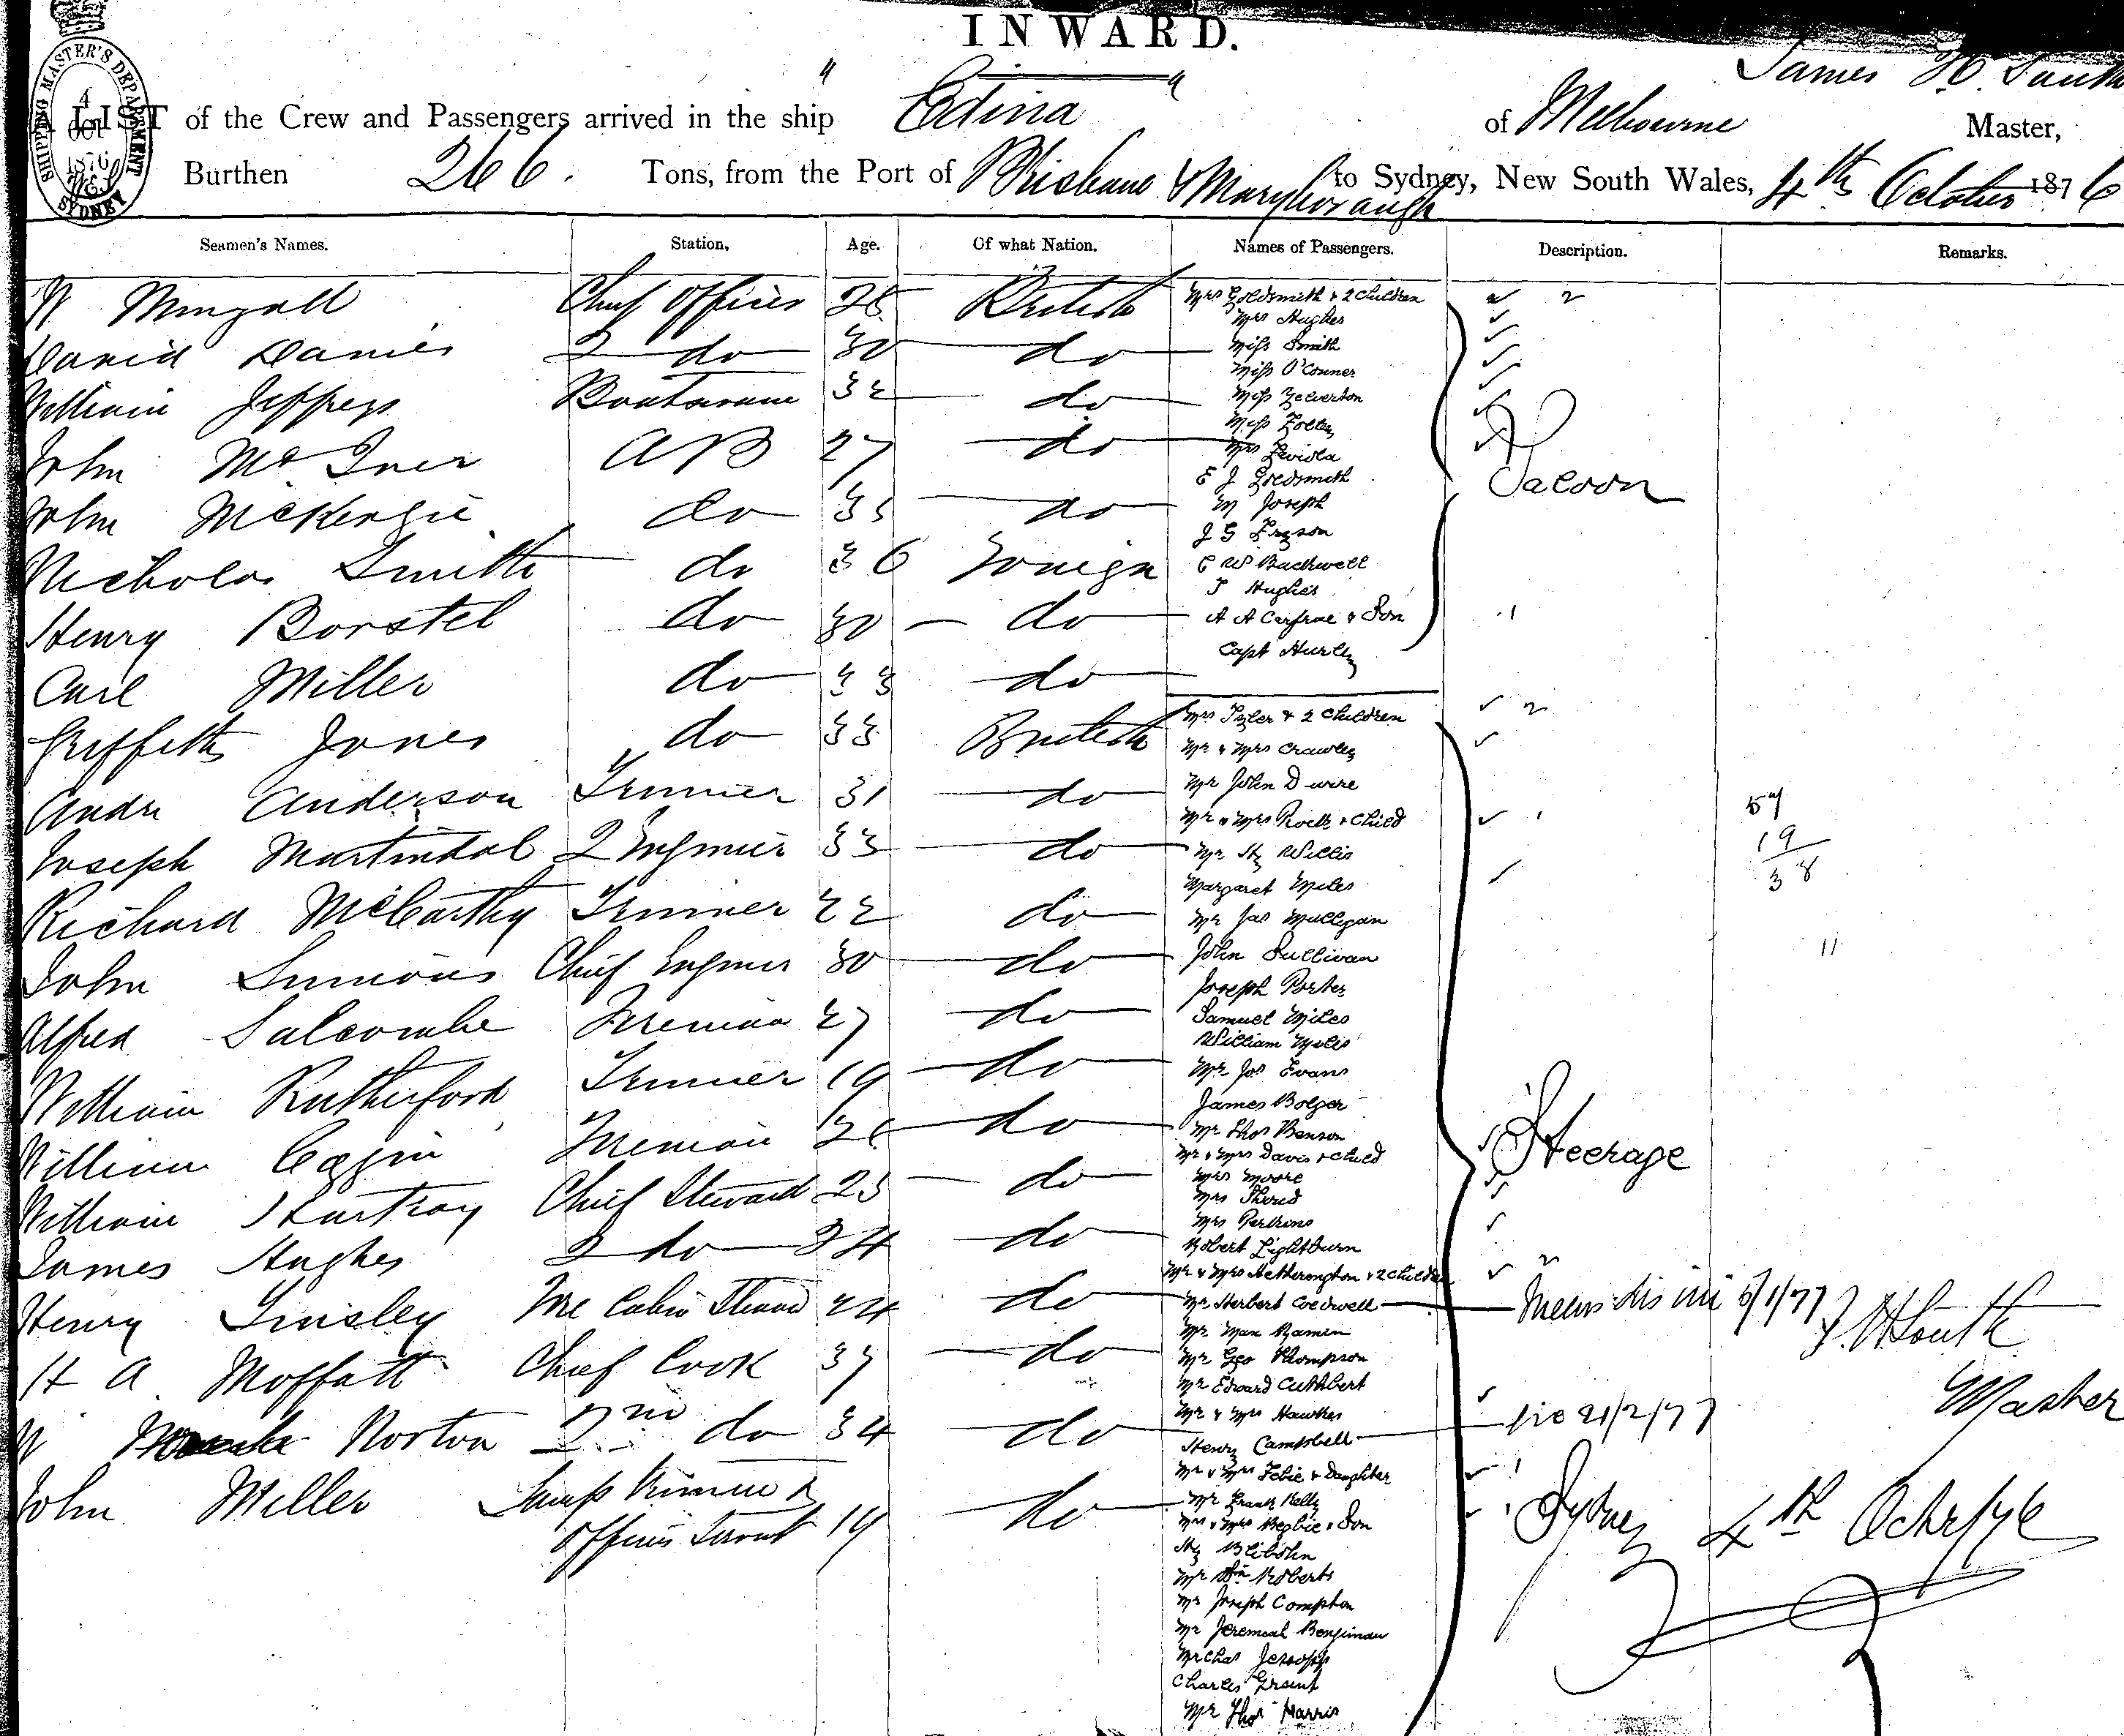 INWARD.
James H. South
A LIST of the Crew and Passengers arrived in the ship "Edina" of Melbourne Master,
SHIPPING MASTER'S DEPARTMENT SYDNEY 4 OCT 1876
Burthen 266. Tons, from the Port of Brisbane & Maryborough to Sydney, New South Wales, 4th October 1876
Seamen's Names. Station. Age. Of what Nation. Names of Passengers. Description. Remarks.
W Mingall Chief Officer British
David Davies 2 do 30 do
William Jeffreys 32 do
John AB 27 do
John McKenzie do 35 do
Nicholas Smith do 36 Foreign
Henry Borstel do 30 do
Carl Miller do 33 do
Griffith Jones do 33 British
Andr Anderson Trimmer 31 do
Joseph Martindal 2 Engineer 33 do
Richard McCarthy Trimmer 22 do
John Simmons Chief Engineer 30 do
Alfred Salcombe Fireman 27 do
William Rutherford Trimmer 19 do
William Fireman do
William Chief Steward 25 do
James Hughes 2 do 24 do
Henry Tinsley Fore Cabin Steward 24 do
H A Moffatt Chief Cook 37 do
W Norton 2nd do 34 do
John Miller Lamp Trimmer &
Officers Servant 19 do
Mrs Goldsmith & 2 Children
Mrs Hughes
Miss Smith
Miss O'Conner
Miss Yelverton
Miss
Mrs
E J Goldsmith
M Joseph
J G
E W Backwell
T Hughes
A A Carfrae & Son
Capt Hurley
Saloon
Mrs Tyler & 2 Children
Mr & Mrs Crawley
Mr John Dwire
Mr & Mrs Rock & Child
Mr Hy Willis
Margaret Miles
Mr Jas Mulligan
John Sullivan
Joseph Porter
Samuel Miles
William
Mr Jos Evans
James Bolger
Mr Thos Benson
Mr & Mrs Davis & Child
Mrs Moore
Mrs
Mrs
Robert Lightburn
Mr & Mrs Hetherington & 2 Children
Mr Herbert Coldwell
Mr Max Ramin
Mr Geo Thompson
Mr Edward Cuthbert
Mr & Mrs Hawkes
Henry Campbell
Mr & Mrs & Daughter
Mr Frank Kelly
Mr & Mrs Begbie & Son
Hy
Mr Wm Roberts
Mr Joseph Compton
Mr Jeremiah Benjiman
Mr Chas Jessopp
Charles Grant
Mr Thos Harris
Steerage
57
19
38
11
5/1/77
J. H. South
Master
21/2/77
Sydney 4th Octr/76